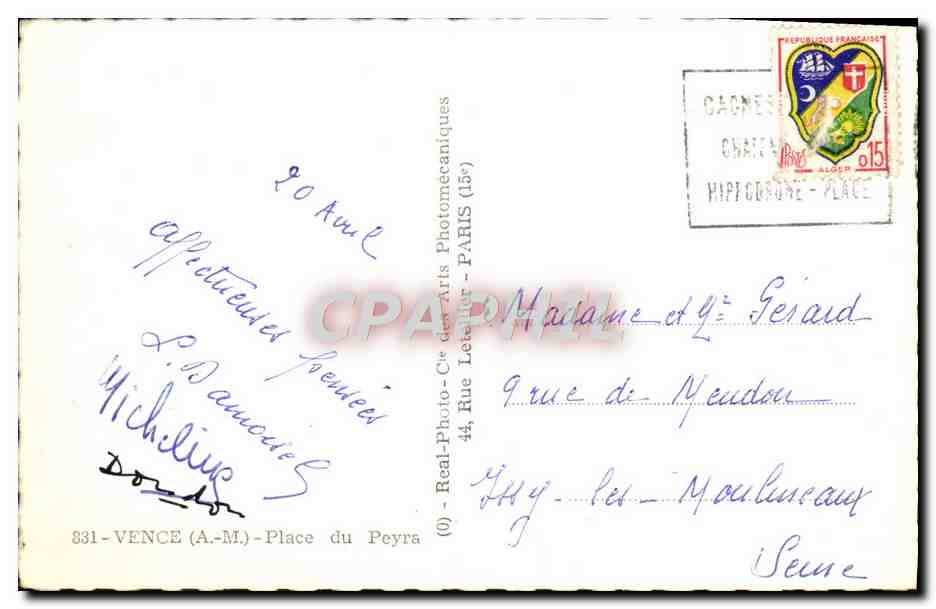 20 Avril
affectueuses pensées
L. Damoisel
Micheline
Dondon
831 - VENCE (A.-M.) - Place du Peyra
(O) - Real-Photo - Cie des Arts Photomécaniques
44, Rue Letellier - PARIS (15e)
REPUBLIQUE FRANÇAISE
POSTES
ALGER
0.15
CAGNES
HIPPODROME - PLAGE
CPAPHIL
Madame et Mr Gérard
9 rue de Meudon
Issy-les-Moulineaux
Seine